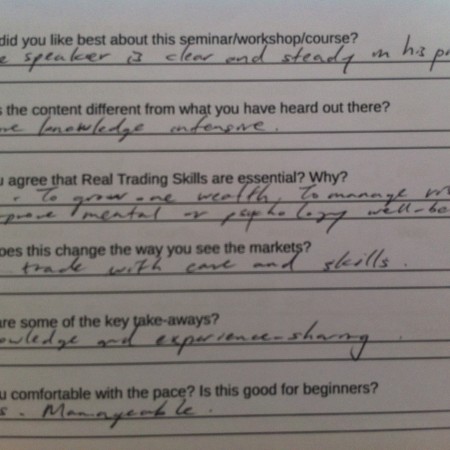 did you like best about this seminar/workshop/course?
e speaker is clear and steady in his pr
s the content different from what you have heard out there?
re knowledge intensive.
u agree that Real Trading Skills are essential? Why?
. To grow one wealth, To manage
prove mental or psychology well-be
oes this change the way you see the markets?
trade with care and skills.
are some of the key take-aways?
owledge and experience-sharing
u comfortable with the pace? Is this good for beginners?
s. Manageable.